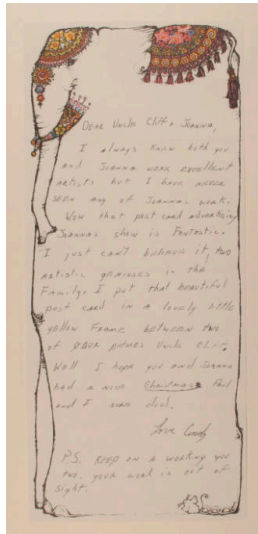 Dear Uncle Cliff & Joanna,
I always knew both you
and Joanna were excellent
artists but I have never
seen any of Joannas work.
Wow that post card advertising
Joannas show is Fantastic.
I just can't believe it, two
artistic geniuses in the
Family. I put that beautiful
post card in a lovely little
yellow Frame between two
of your Uncle Cliff.
Well I hope you and Joanna
had a nice Christmas Paul
and I sure did.
Love
P.S. Keep on a working you
two, your work is out of
sight.